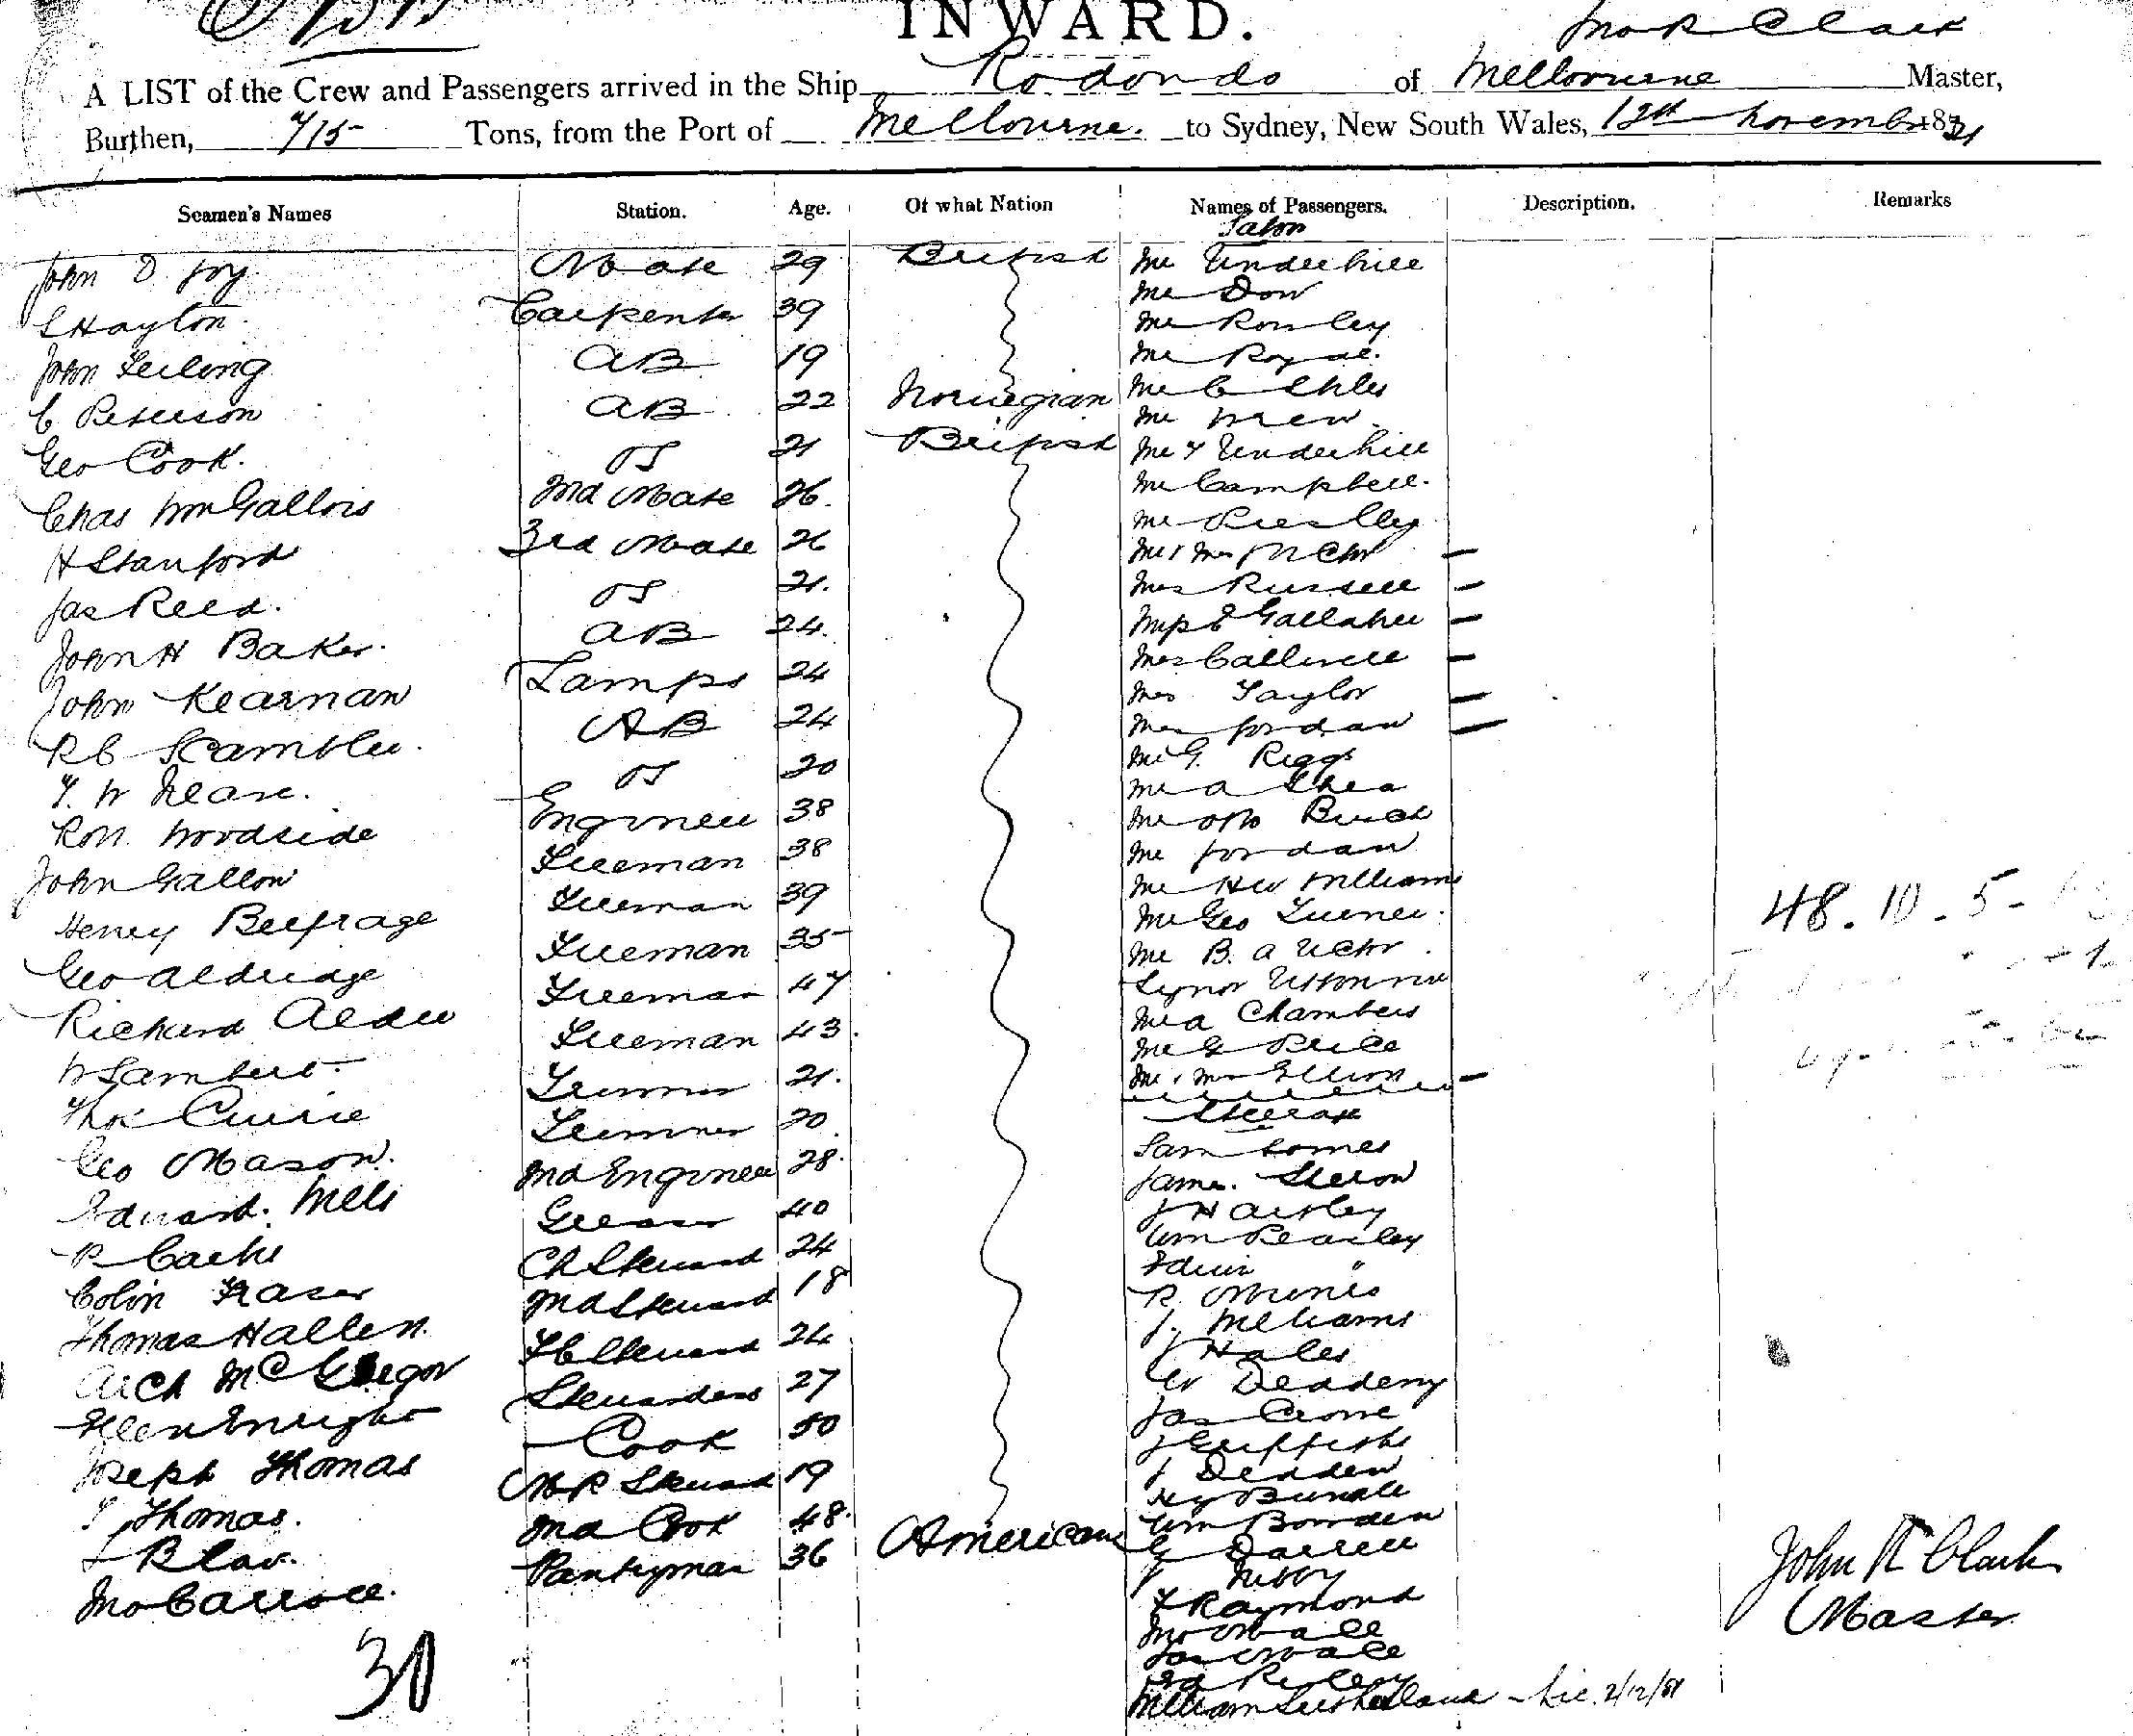 INWARD.
Jno R Clark
A LIST of the Crew and Passengers arrived in the Ship Rodondo of Melbourne Master,
Burthen, 715 Tons, from the Port of Melbourne. to Sydney, New South Wales, 12th November 1881
Seamen's Names Station. Age. Of what Nation Names of Passengers. Description. Remarks
Salon
John D Joy Mate 29 British Mr Underhill
Mr Dow
S Hayton Carpenter 39 Mr Rowley
John AB 19 Mr Royal.
C Peterson AB 22 Norwegian Mr C Ehles
Mr Mew
Geo Cook. OS 21 British Mr Y Underhill
Chas Wm Gallois 2nd Mate 26. Mr Campbell.
Mr
H Stanford 3rd Mate 26 Mr & Mrs
Jas Reed. OS 21. Mrs Russell
John H Baker. AB 24. Miss E Gallaher
Mrs Calliwell
John Kearnan Lamps 24 Mrs Taylor
R C Scambler. AB 24 Mrs Jordan
Mr G. Riggs
T. W OS 20 Mr A Shea
Robt. Woodside Engineer 38 Mr Otto Buick
John Gallon Fireman 38 Mr Jordan
Mr H W Williams
Henry Belfrage Fireman 39 Mr Geo Turner. 48. 10. 5-
Geo Aldridge Fireman 35 Mr B. A
Signor
Richard Alder Fireman 47 Mr A Chambers
W Lambert. Fireman 43. Mr G Price
Thos Currie Trimmer 21. Mr & Mrs Ellison
Steerage
Geo Mason. Trimmer 20 Sam Tomes
Edward. Mills 2nd Engineer 28. James.
J Hartley
R Greaser 40 Wm Pearley
Colin Fraser Ch Steward 24 Edwin "
R. Munro
Thomas Hallen. 2nd Steward 18 J. Williams
J Hales
Arch McGregor F C Steward 24 W Deadeny
Ellen Enright Stewardess 27 Jas Crone
Joseph Thomas Cook 50 J Griffiths
J Deaden
T Thomas. M R Steward 19 Hy Bundle
2nd Cook 48. Wm Bowden
Jno Carroll. Pantryman 36 American G Darrell
F Raymond
Jno Mall
Jas Mall
William Sutherland - 2/12/81
30
John R Clark
Master